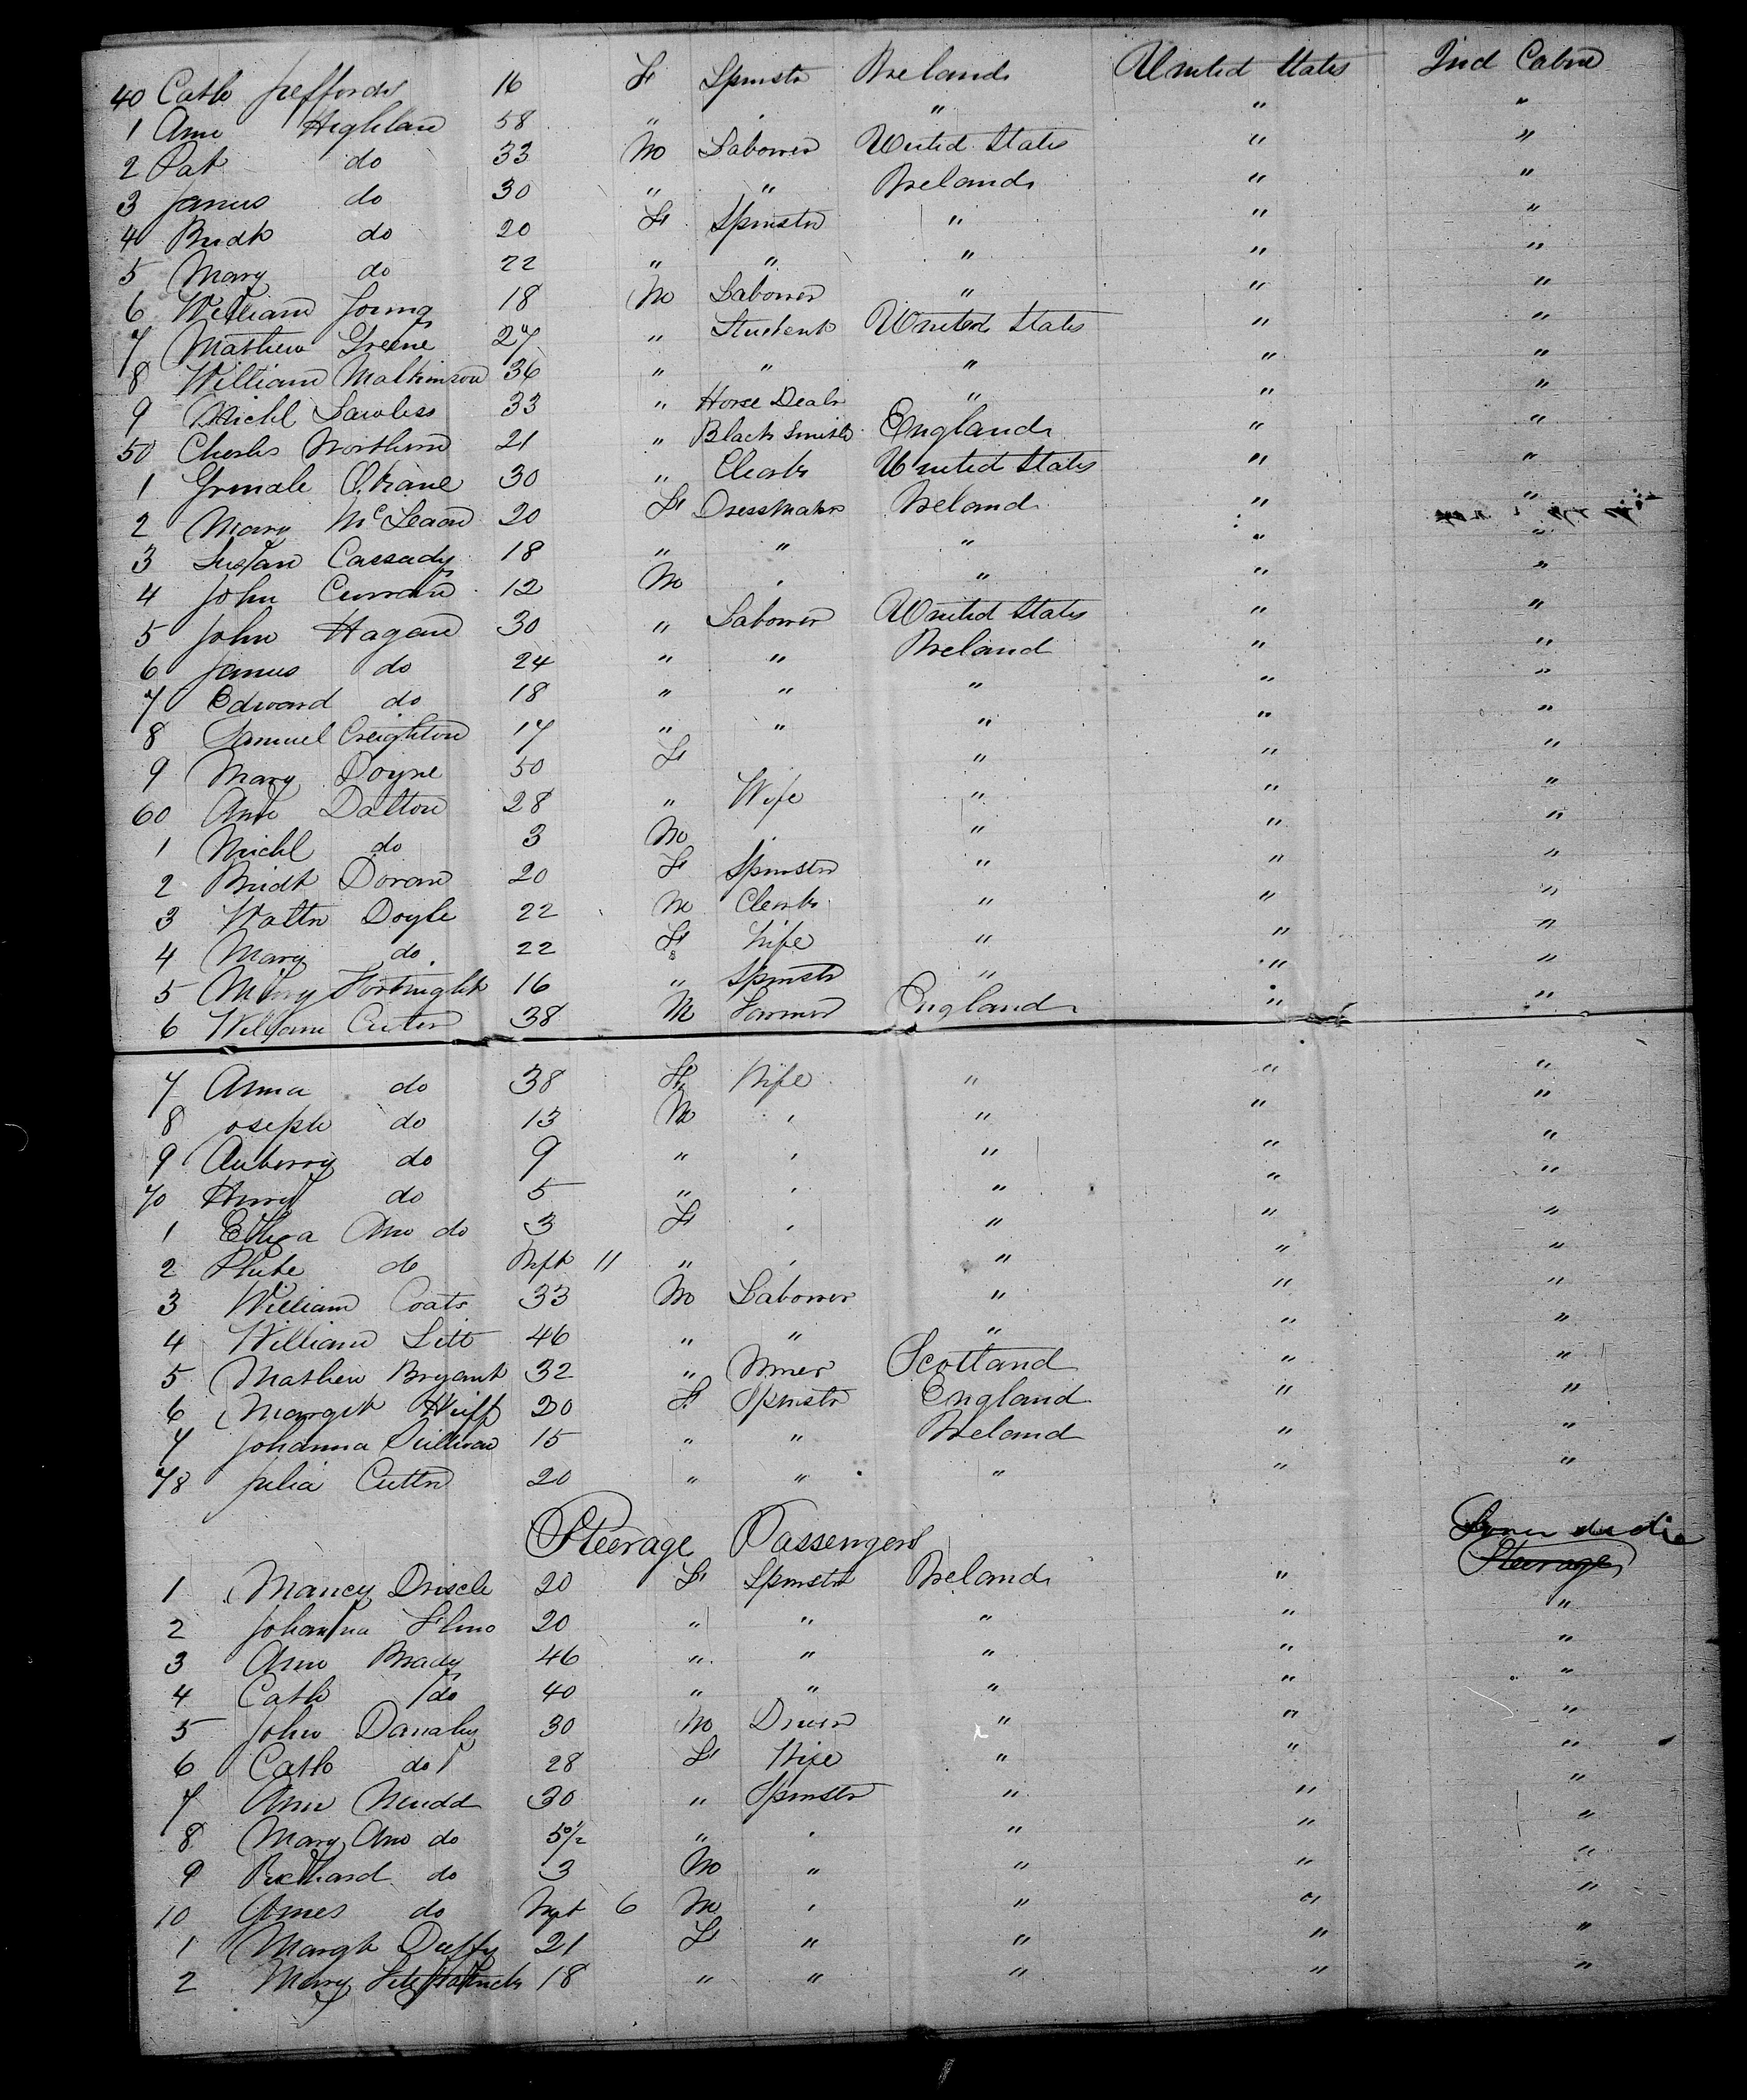 40 Cath Jeffords 16 F Spinstr Ireland United States 2nd Cabin
1 Ann Highland 58 " " " " "
2 Pat do 33 M Labourer United States " "
3 James do 30 " " Ireland " "
4 Bridt do 20 F Spinster " " "
5 Mary do 22 " " " " "
6 William Young 18 M Labourer " " "
7 Mathew Greene 27 " Student United States " "
8 William Malkinson 36 " " " " "
9 Michl Lawless 33 " Horse Dealr " " "
50 Charles Northern 21 " Black Smith England " "
1 30 " Clerk United States " "
2 Mary McLean 20 F DressMaker Ireland " "
3 Susan Cassady 18 " " " " "
4 John Curran 12 M " " " "
5 John Hagan 30 " Labourer United States " "
6 James do 24 " " Ireland " "
7 Edward do 18 " " " " "
8 Samuel Creighton 17 " " " " "
9 Mary Doyne 50 F " " "
60 Ann Dalton 28 " Wife " " "
1 Michl do 3 M " " "
2 Bridt Doran 20 F Spinster " " "
3 Waltr Doyle 22 M Clerk " " "
4 Mary do 22 F Wife " " "
5 Mary Fortnight 16 " Spinstr " " "
6 William Cuter 38 M Farmer England " "
7 Anna do 38 F Wife " " "
8 Joseph do 13 M " " " "
9 Auberry do 9 " " " " "
70 Henry do 5 " " " " "
1 Ann do 3 F " " " "
2 Phibe do Inft 11 " " " " "
3 William Coats 33 M Labourer " " "
4 William Litt 46 " " " " "
5 Mathew Bryant 32 " Miner Scotland " "
6 Margrt 20 F Spinstr England " "
7 Johanna Sullivan 15 " " Ireland " "
78 Julia Cuttr 20 " " " " "
Steerage Passengers
1 Nancy Driscle 20 F Spinster Ireland " Steerage
2 Johanna 20 " " " " "
3 Ann Brady 46 " " " " "
4 Cath do 40 " " " " "
5 John Danahy 30 M " " "
6 Cath do 28 F Wife " " "
7 Ann Mudd 30 " Spinster " " "
8 Mary Ann do 5½ " " " " "
9 Richard do 3 M " " " "
10 James do Inft 6 M " " " "
1 Margt Duffy 21 F " " " "
2 Mary Fitzpatrick 18 " " " " "